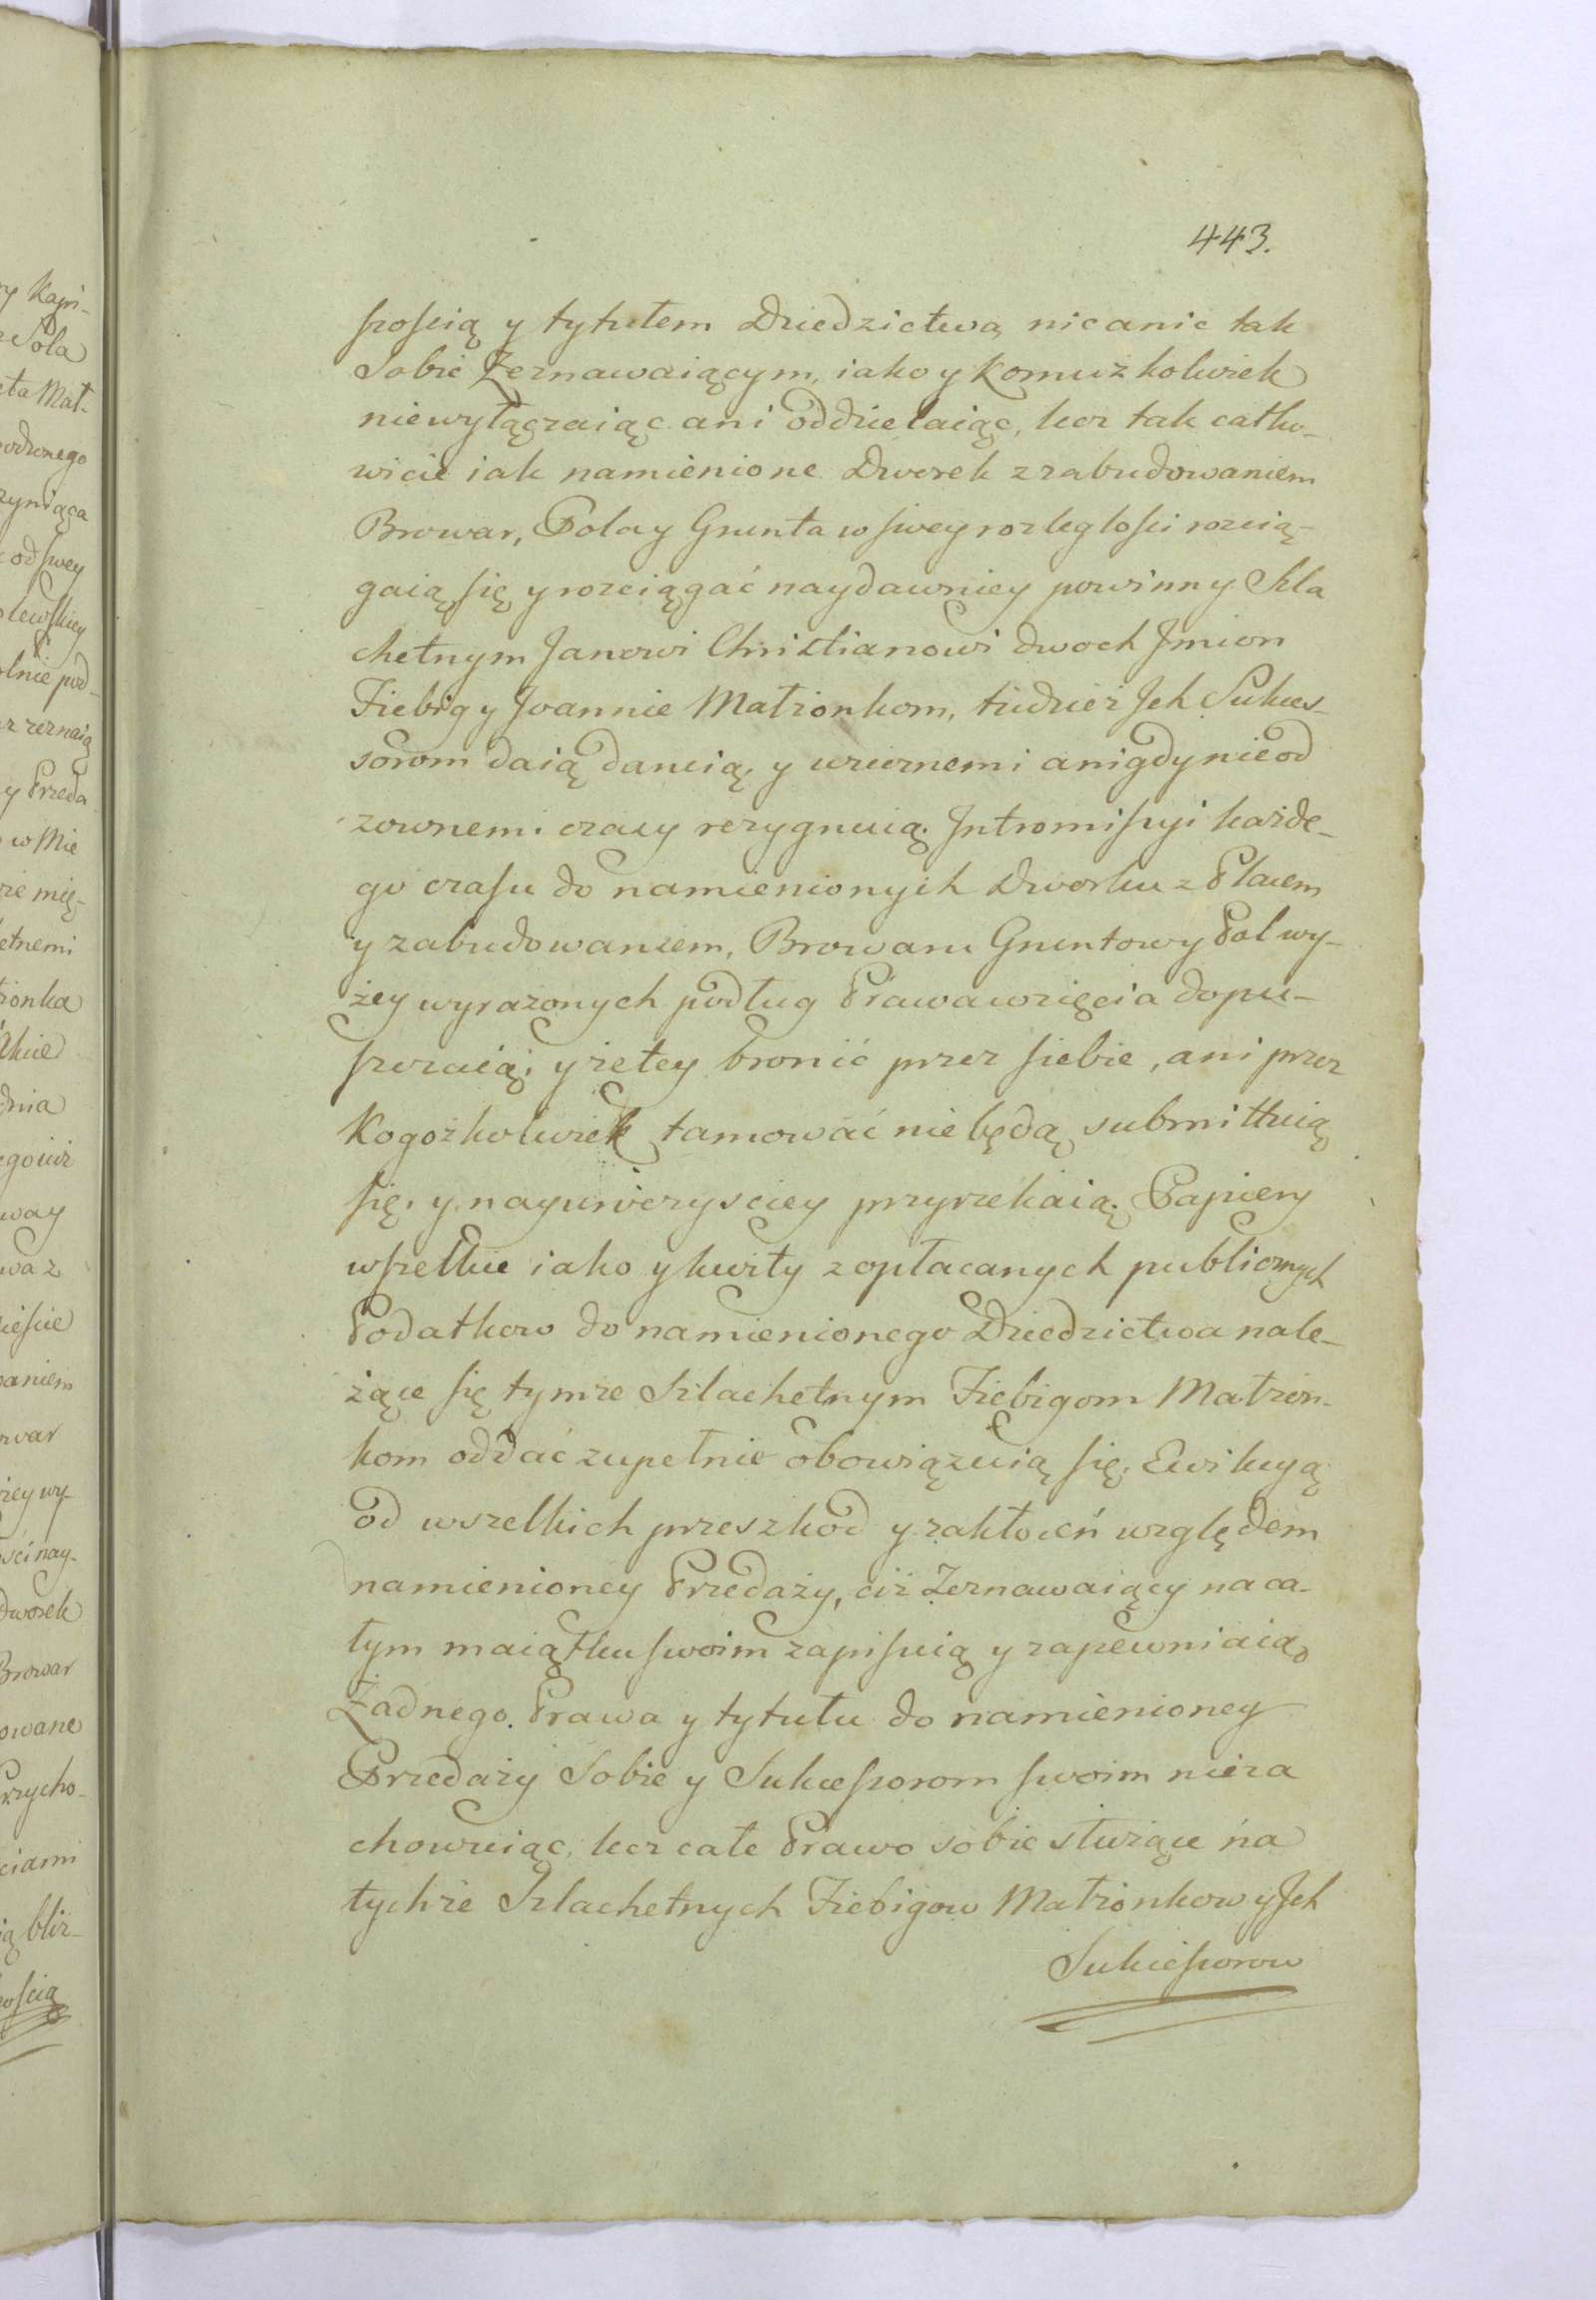 443.
szoscią y tytułem Dziedzictwa, nic anic tak
Sobie Zeznawaiącym, iako y komuż kolwiek
niewyłączaiąc ani oddzielaiąc, lecz tak całko-
wicie iak namienione Dworek z zabudowaniem
Browar, Pola y Grunta w swey rozległości rozcią-
gaią się y rozciągać naydawniey powinny. Szla
chetnym Janowi Christianowi dwoch Jmion
Fiebig y Joannie Małżonkom, tudzież Jch Sukces-
sorom daią, daruią, y wiecznemi a nigdy nieod
zownemi czasy rezygnuią. Intromissyi każde-
go czasu do namienionych Dworku z Placem
y zabudowaniem, Browaru Gruntow y Pol wy-
żey wyrażonych podług Prawa wzięcia dopu-
szczaią, y że tey bronić przez siebie, ani przez
Kogożkolwiek tamować nie będą submittuią
się, y nayuroczyściey przyrzekaią. Papiery
wszelkie iako y kwity z opłacanych publicznych
Podatkow do namienionego Dziedzictwa nale-
żące się tymże Szlachetnym Fiebigom Małżon-
kom oddać zupełnie obowiązuią się. Ewikcyą
od wszelkich przeszkod y zakłoceń względem
namienioney Przedaży, ciż Zeznawaiący na ca-
łym maiątku swoim zapisuią y zapewniaią,
Żadnego Prawa y tytułu do namienioney
Przedaży Sobie y Sukcessorom swoim nieza
chowuiąc, lecz całe Prawo sobie służące na
tychże Szlachetnych Fiebigow Małżonkow y Jch
Sukcessorow